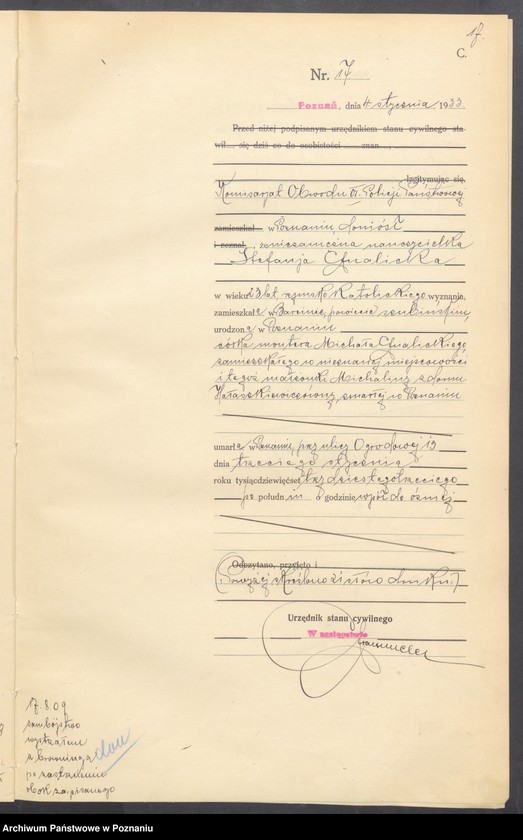 17.
C.
Nr. 17
Poznań, dnia 4 stycznia 1933
Przed niżej podpisanym urzędnikiem stanu cywilnego sta-
wił się dziś co do osobistości znan
legitymując się,
Komisarjat Obwodu VI. Policji Państwowej
zamieszkał w Poznaniu doniósł
i zeznał, że niezamężna nauczycielka
Stefanja Chualicka
w wieku 23 lat, rzymsko katolickiego wyznania,
zamieszkała w Barcinie, powiecie szubińskim,
urodzona w Poznaniu
córka montera Michała Chualickiego
zamieszkałego w nieznanej miejscowości
i tegoż małżonki Michaliny z domu
zmarłej w Poznaniu
umarła w Poznaniu, przy ulicy Ogrodowej 13
dnia trzeciego stycznia
roku tysiącdziewięćset trzydziestego trzeciego
po połudn iu o godzinie wpół do ósmej
Odczytano, przyjęto i
(Powyżej skreślono słowo druku.)
Urzędnik stanu cywilnego
W zastępstwie
17. 8. 09
samobójstwo
wystrzałem
z browninga
po zasłanem
obok zapisanego
Archiwum Państwowe w Poznaniu